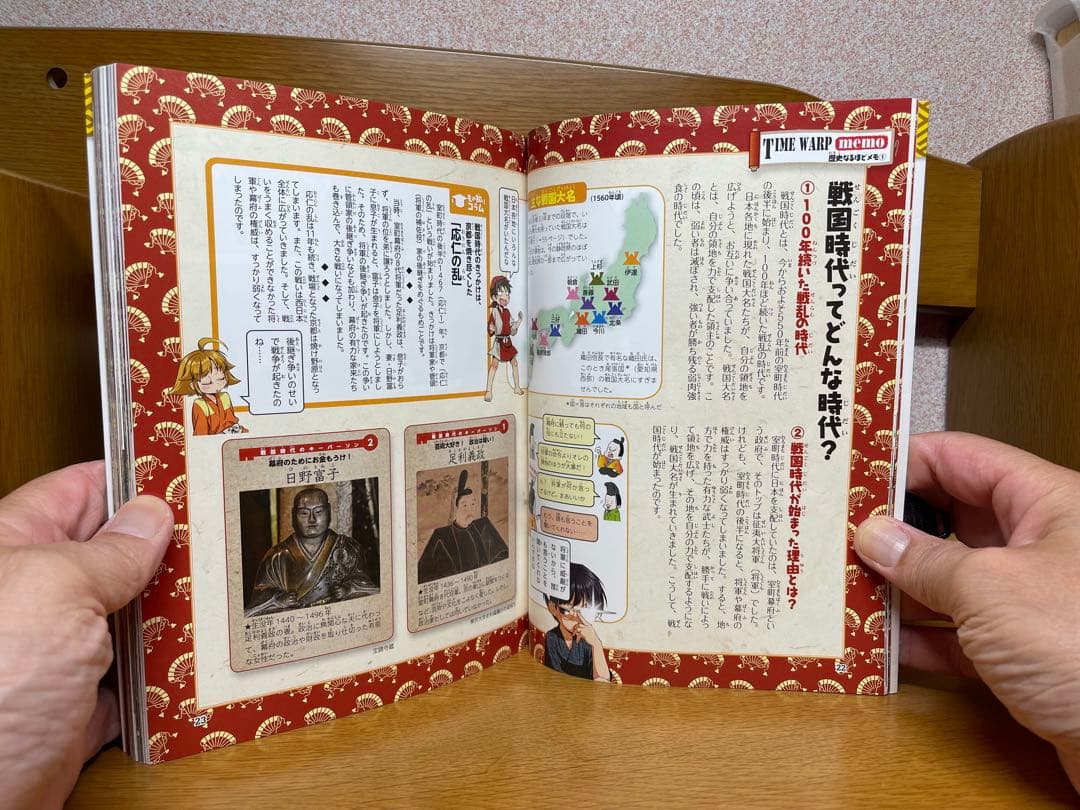 TIME WARP memo
歴史なるほどメモ①
戦国時代ってどんな時代？
①100年続いた戦乱の時代
戦国時代とは、今からおよそ550年前の室町時代
の後半に始まり、100年ほど続いた戦乱の時代です。
日本各地に現れた戦国大名たちが、自分の領地を
広げようと、お互いに争い合っていました。戦国大名
とは、自分の領地を力で支配した領主のことです。こ
の頃は、弱い者は滅ぼされ、強い者が勝ち残る弱肉強
食の時代でした。
②戦国時代が始まった理由とは？
室町時代に日本を支配していたのは、室町幕府とい
う政府で、そのトップは征夷大将軍（将軍）でした。
けれども、室町時代の後半になると、将軍や幕府の
権威はすっかり弱くなってしまいました。すると、地
方で力を持った有力な武士たちが、勝手に戦いによっ
て領地を広げ、その地を自分の力で支配するようにな
り、戦国大名が生まれていきました。こうして、戦
国時代が始まったのです。
な戦国大名
(1560年頃)
伊達
上杉
武田
朝倉
斎藤
北条
今川
織田
三好
織田信長で有名な織田氏は、
このとき尾張国＊（愛知県
西部）の戦国大名にすぎま
せんでした。
＊国＝昔はそれぞれの地域も国と呼んだ
幕府に頼っても何の
役にも立たない！
将軍に権威が
ないから、誰
も言うことを
22
日本各地にいろんな
戦国大名がいたんだな
もの知りコラム
戦国時代のきっかけは、
京都を焼き尽くした
「応仁の乱」
室町時代の後半の1467（応仁1）年、京都で「応仁
の乱」という戦いが始まりました。きっかけは将軍家や管領
（将軍の補佐役）家の後継ぎをめぐるもめごとです。
◆◆◆
当時、室町幕府の8代将軍だった足利義政は、息子がおら
ず、将軍の位を弟に譲ろうとしました。しかし、妻・日野富
子に息子が生まれると、富子は息子を将軍にしようとしまし
た。そのため、将軍の後継ぎ争いが起きたのです。この争い
に管領家の後継ぎ争いなども加わり、幕府の有力な家来たち
も巻き込んで、大きな戦いになってしまいました。
◆◆◆
応仁の乱は11年も続き、戦場となった京都は焼け野原となっ
てしまいます。また、この戦いは西日本
全体に広がっていきました。そして、戦
いをうまく収めることができなかった将
軍や幕府の権威は、すっかり弱くなって
しまったのです。
後継ぎ争いのせい
で戦争が起きたの
ね……
戦国時代のキーパーソン 1
芸術大好き！ 政治は嫌い！
足利義政
★生没年 1436～1490年
戦国時代のキーパーソン 2
幕府のためにお金もうけ！
日野富子
★生没年 1440～1496年
足利義政の妻。政治に無関心な夫に代わっ
て、幕府の政治や財政を取り仕切った有能
な女性だった。
宝鏡寺蔵
23